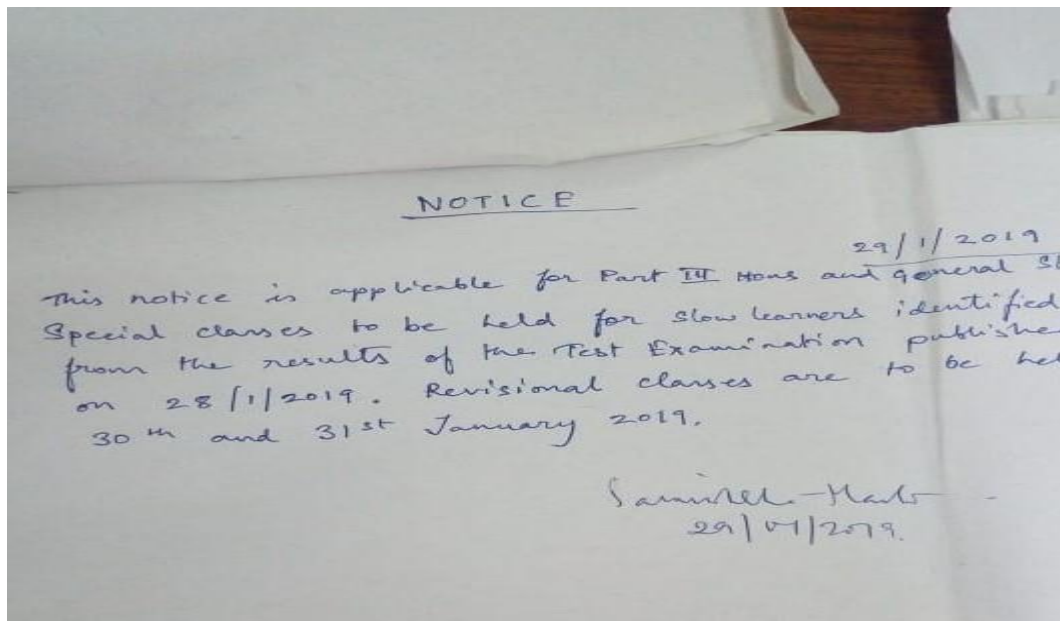 NOTICE
29/1/2019
This notice is applicable for Part III Hons and General
Special classes to be held for slow learners identified
from the results of the Test Examination publishe
on 28/1/2019. Revisional classes are to be hel
30th and 31st January 2019.
29/01/2019.